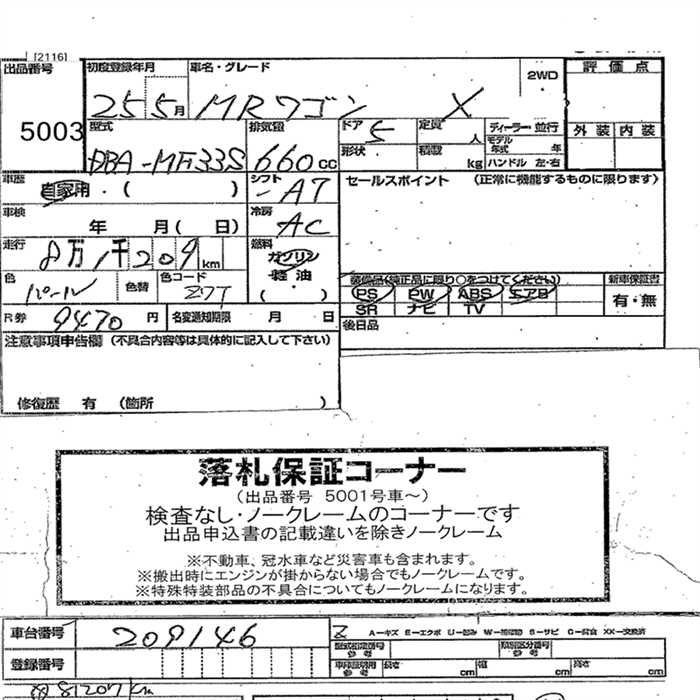 [2116]
出品番号 初度登録年月 車名・グレード 2WD 評価点
5003 25 5月 MRワゴン X 外装 内装
型式 排気量 ドア 定員 人 ディーラー 並行
DBA-MF33S 660cc 5 形状 積載 kg モデル年式 年 ハンドル 左・右
車歴 自家用・( ) シフト AT セールスポイント (正常に機能するものに限ります)
車検 年 月( 日) 冷房 AC
走行 8万1千209km 燃料 ガソリン 軽油 ( )
色 パール 色替 色コード Z7T 装備品(純正品に限り○をつけてください) 新車保証書
PS PW ABS エアB 有・無
SR ナビ TV
R券 9470円 名変通知期限 月 日 後日品
注意事項申告欄 (不具合内容等は具体的に記入して下さい)
修復歴 有 (箇所 )
落札保証コーナー
(出品番号 5001号車~)
検査なし・ノークレームのコーナーです
出品申込書の記載違いを除きノークレーム
※不動車、冠水車など災害車も含まれます。
※搬出時にエンジンが掛からない場合でもノークレームです。
※特殊特装部品の不具合についてもノークレームになります。
車台番号 209146 A-キズ E-エクボ U-凹み W-補修跡 S-サビ C-腐食 XX-交換済
型式指定番号 参考 類別区分番号 参考
登録番号 車検証期用 参考 長さ cm 幅 cm 高さ cm
81207km